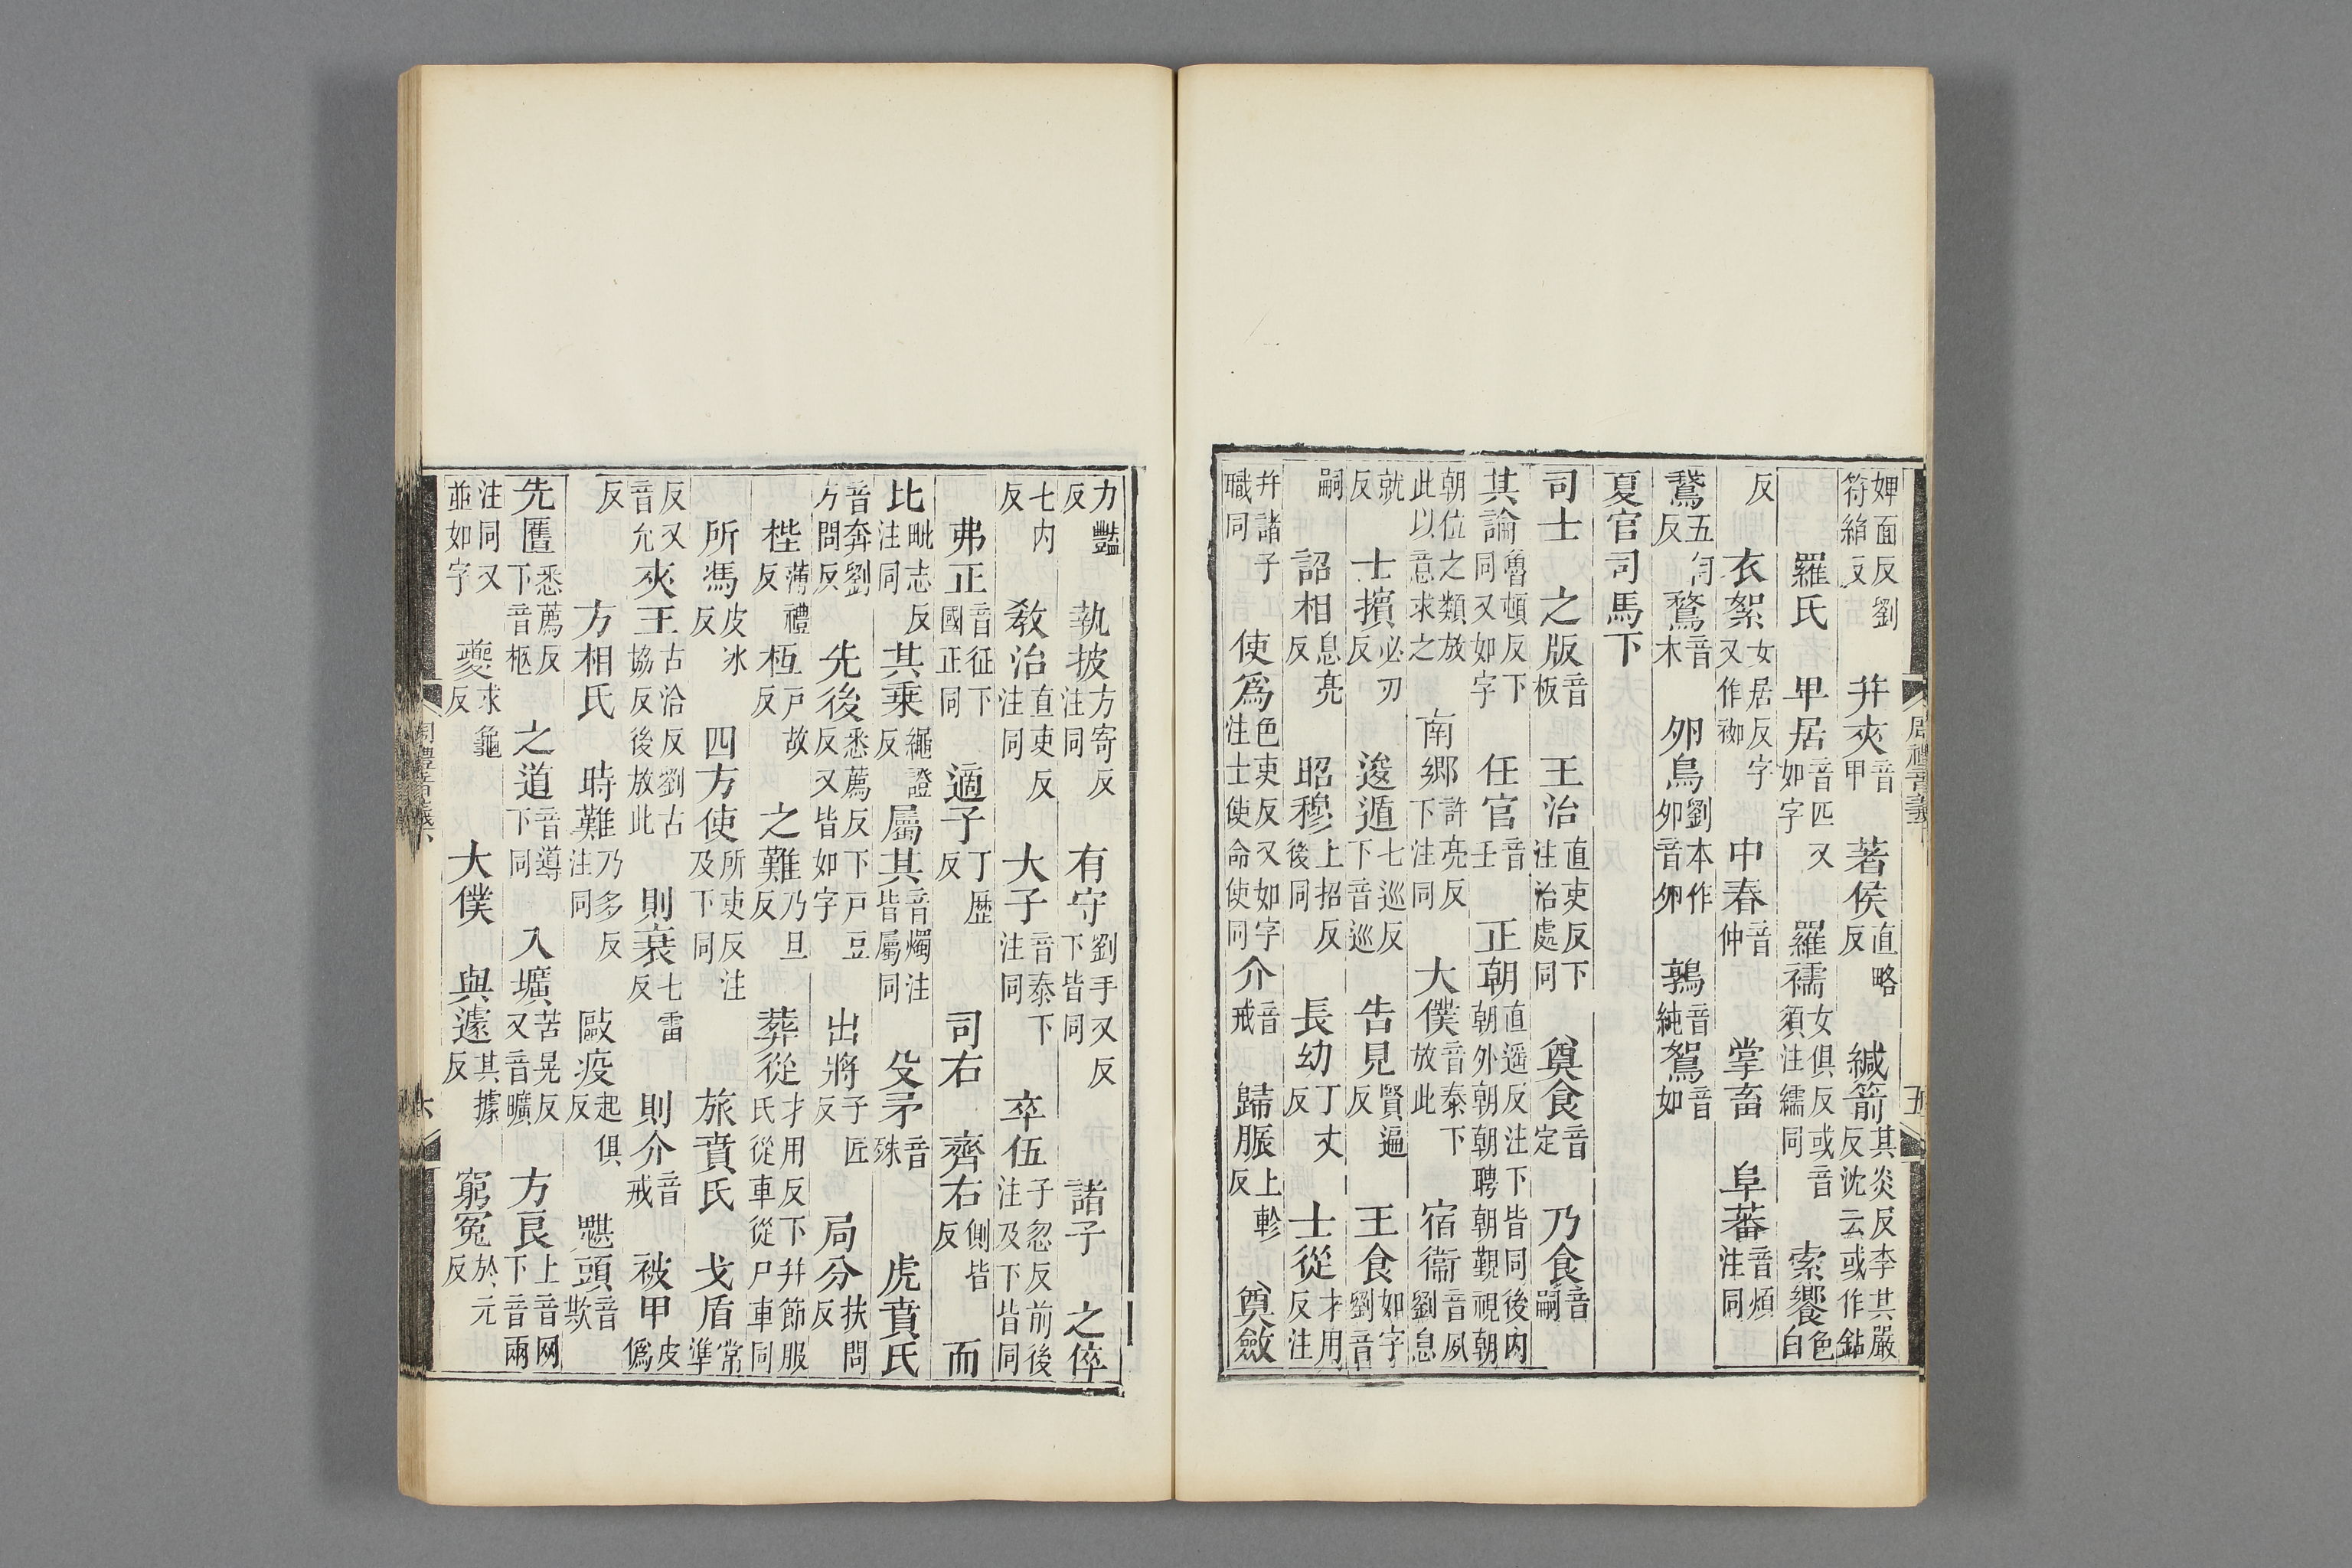 婢面反劉符絹反 并夾音甲 著侯直略反 緘箭其炎反李其嚴反沈云或作鉆
羅氏 卑居音匹又如字 羅襦女俱反或音須注繻同 索饗色白
反 衣絮女居反字又作袽 中春音仲 掌畜 阜蕃音煩注同
鵞五何反 鶩音木 夘鳥劉本作夘音卵 鶉音純 鴽音如
夏官司馬下
司士 之版音板 王治直吏反下注治處同 奠食音定 乃食音嗣
其論魯頓反下同又如字 任官音壬 正朝直遥反注下皆同後内朝外朝朝聘朝覲視朝
朝位之類放此以意求之 南鄉許亮反下注同 大僕音泰下放此 宿衞音夙劉息
就反 士擯必刃反 逡遁七巡反下音巡 告見賢遍反 王食如字劉音
嗣 詔相息亮反 昭穆上招反後同 長幼丁丈反 士從才用反注
并諸子職同 使爲色吏反又如字注士使命使同 介音戒 歸脤上軫反 奠斂
力豔反 執披方寄反注同 有守劉手又反下皆同 諸子 之倅
七内反 敎治直吏反注同 大子音泰下注同 卒伍子忽反前後注及下皆同
弗正音征下國正同 適子丁歴反 司右 齊右側皆反 而
比毗志反注同 其乗繩證反 屬其音燭注皆屬同 殳矛音殊 虎賁氏
音奔劉方問反 先後悉薦反下戸豆反又皆如字 出將子匠反 局分扶問反
梐薄禮反 枑戸故反 之難乃旦反 葬從才用反下并節服氏從車從尸車同
所馮皮冰反 四方使所吏反注及下同 旅賁氏 戈盾常準
反又音允 夾王古洽反劉古協反後放此 則衰七雷反 則介音戒 被甲皮僞
反 方相氏 時難乃多反注同 毆疫起俱反 魌頭音欺
先匶悉薦反下音柩 之道音導下同 入壙苦晃反又音曠 方良上音网下音兩
注同又並如字 夔求龜反 大僕 與遽其據反 窮冤於元反
周禮音義下 五
周禮音義下 六